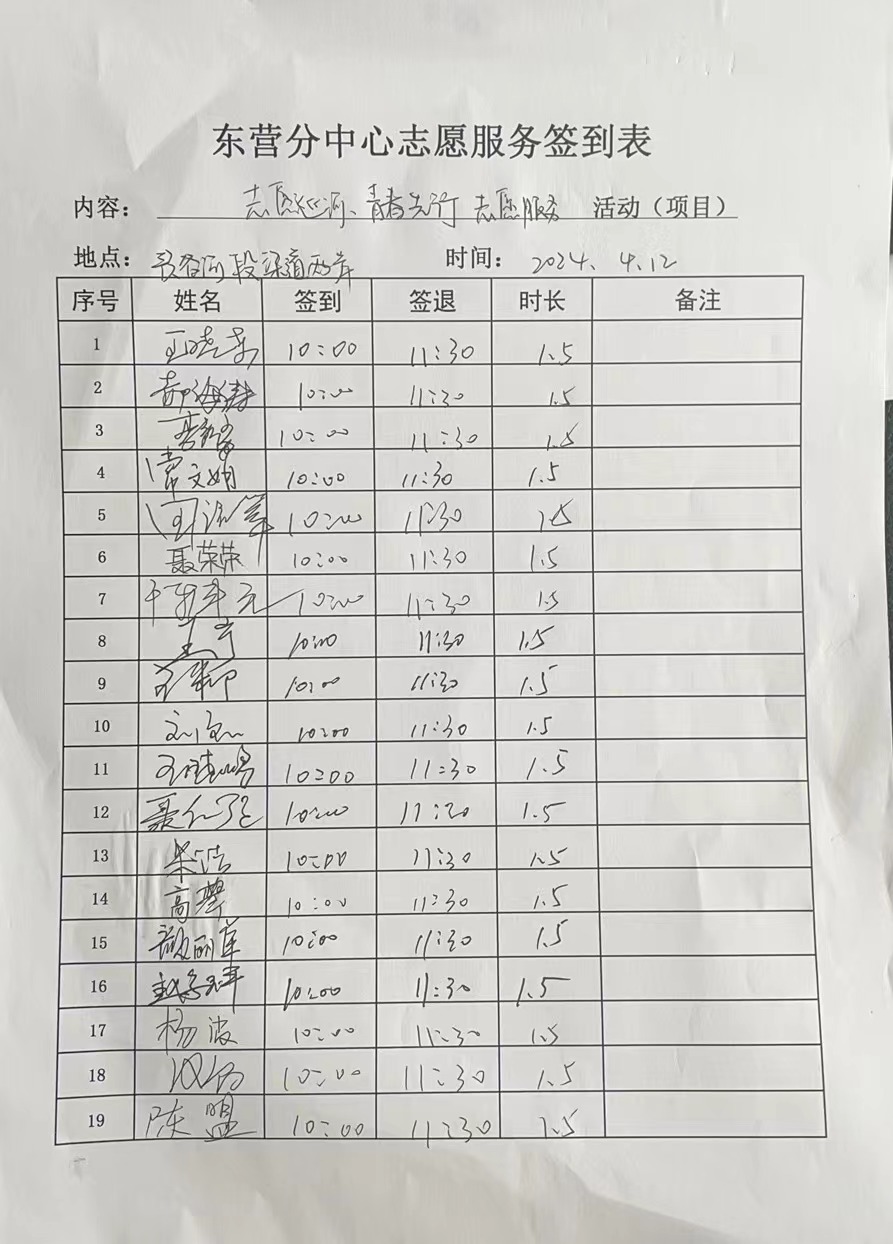 东营分中心志愿服务签到表
内容： 志愿巡河、青春先行 志愿服务 活动（项目）
地点： 段渠道两岸 时间： 2024. 4.12
序号 姓名 签到 签退 时长 备注
1 王晓东 10:00 11:30 1.5
2 郝海涛 10:00 11:30 1.5
3 10:00 11:30 1.5
4 常文娟 10:00 11:30 1.5
5 10:00 11:30 1.5
6 聂荣荣 10:00 11:30 1.5
7 10:00 11:30 1.5
8 王宁 10:00 11:30 1.5
9 10:00 11:30 1.5
10 10:00 11:30 1.5
11 10:00 11:30 1.5
12 10:00 11:30 1.5
13 朱浩 10:00 11:30 1.5
14 高琴 10:00 11:30 1.5
15 10:00 11:30 1.5
16 10:00 11:30 1.5
17 杨波 10:00 11:30 1.5
18 10:00 11:30 1.5
19 陈盟 10:00 11:30 1.5